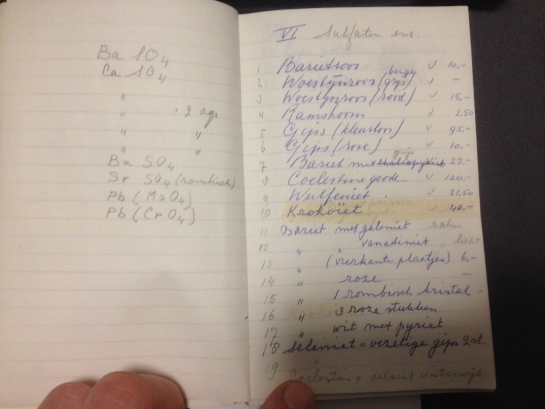 Ba SO4
Ca SO4
"
" · 2 aq.
" "
" "
Ba SO4
Sr SO4 (rombisch)
Pb (MoO4)
Pb (CrO4)
VI Sulfaten enz.
1 Barietroos v 10,-
2 Woestijnroos (grijs) beige v -
3 Woestijnroos (rood) v 15,-
4 Ramshoorn v 2.50
5 Gips (kleurloos) v 95,-
6 Gips (rose) v 10,-
7 Bariet met v 25,-
8 Coelestine geode v 120,-
9 Wulfeniet v 21,50
10 Krokoïet v 40,-
11 Bariet met galeniet
12 " " vanadiniet
13 " (vierkante plaatjes) 6,-
14 " roze -
15 " 1 rombisch kristal -
16 " 3 roze stukken
17 " wit met pyriet
18 Seleniet = vezelige gips 2 st.
19 Coelestien + calciet Winterswijk